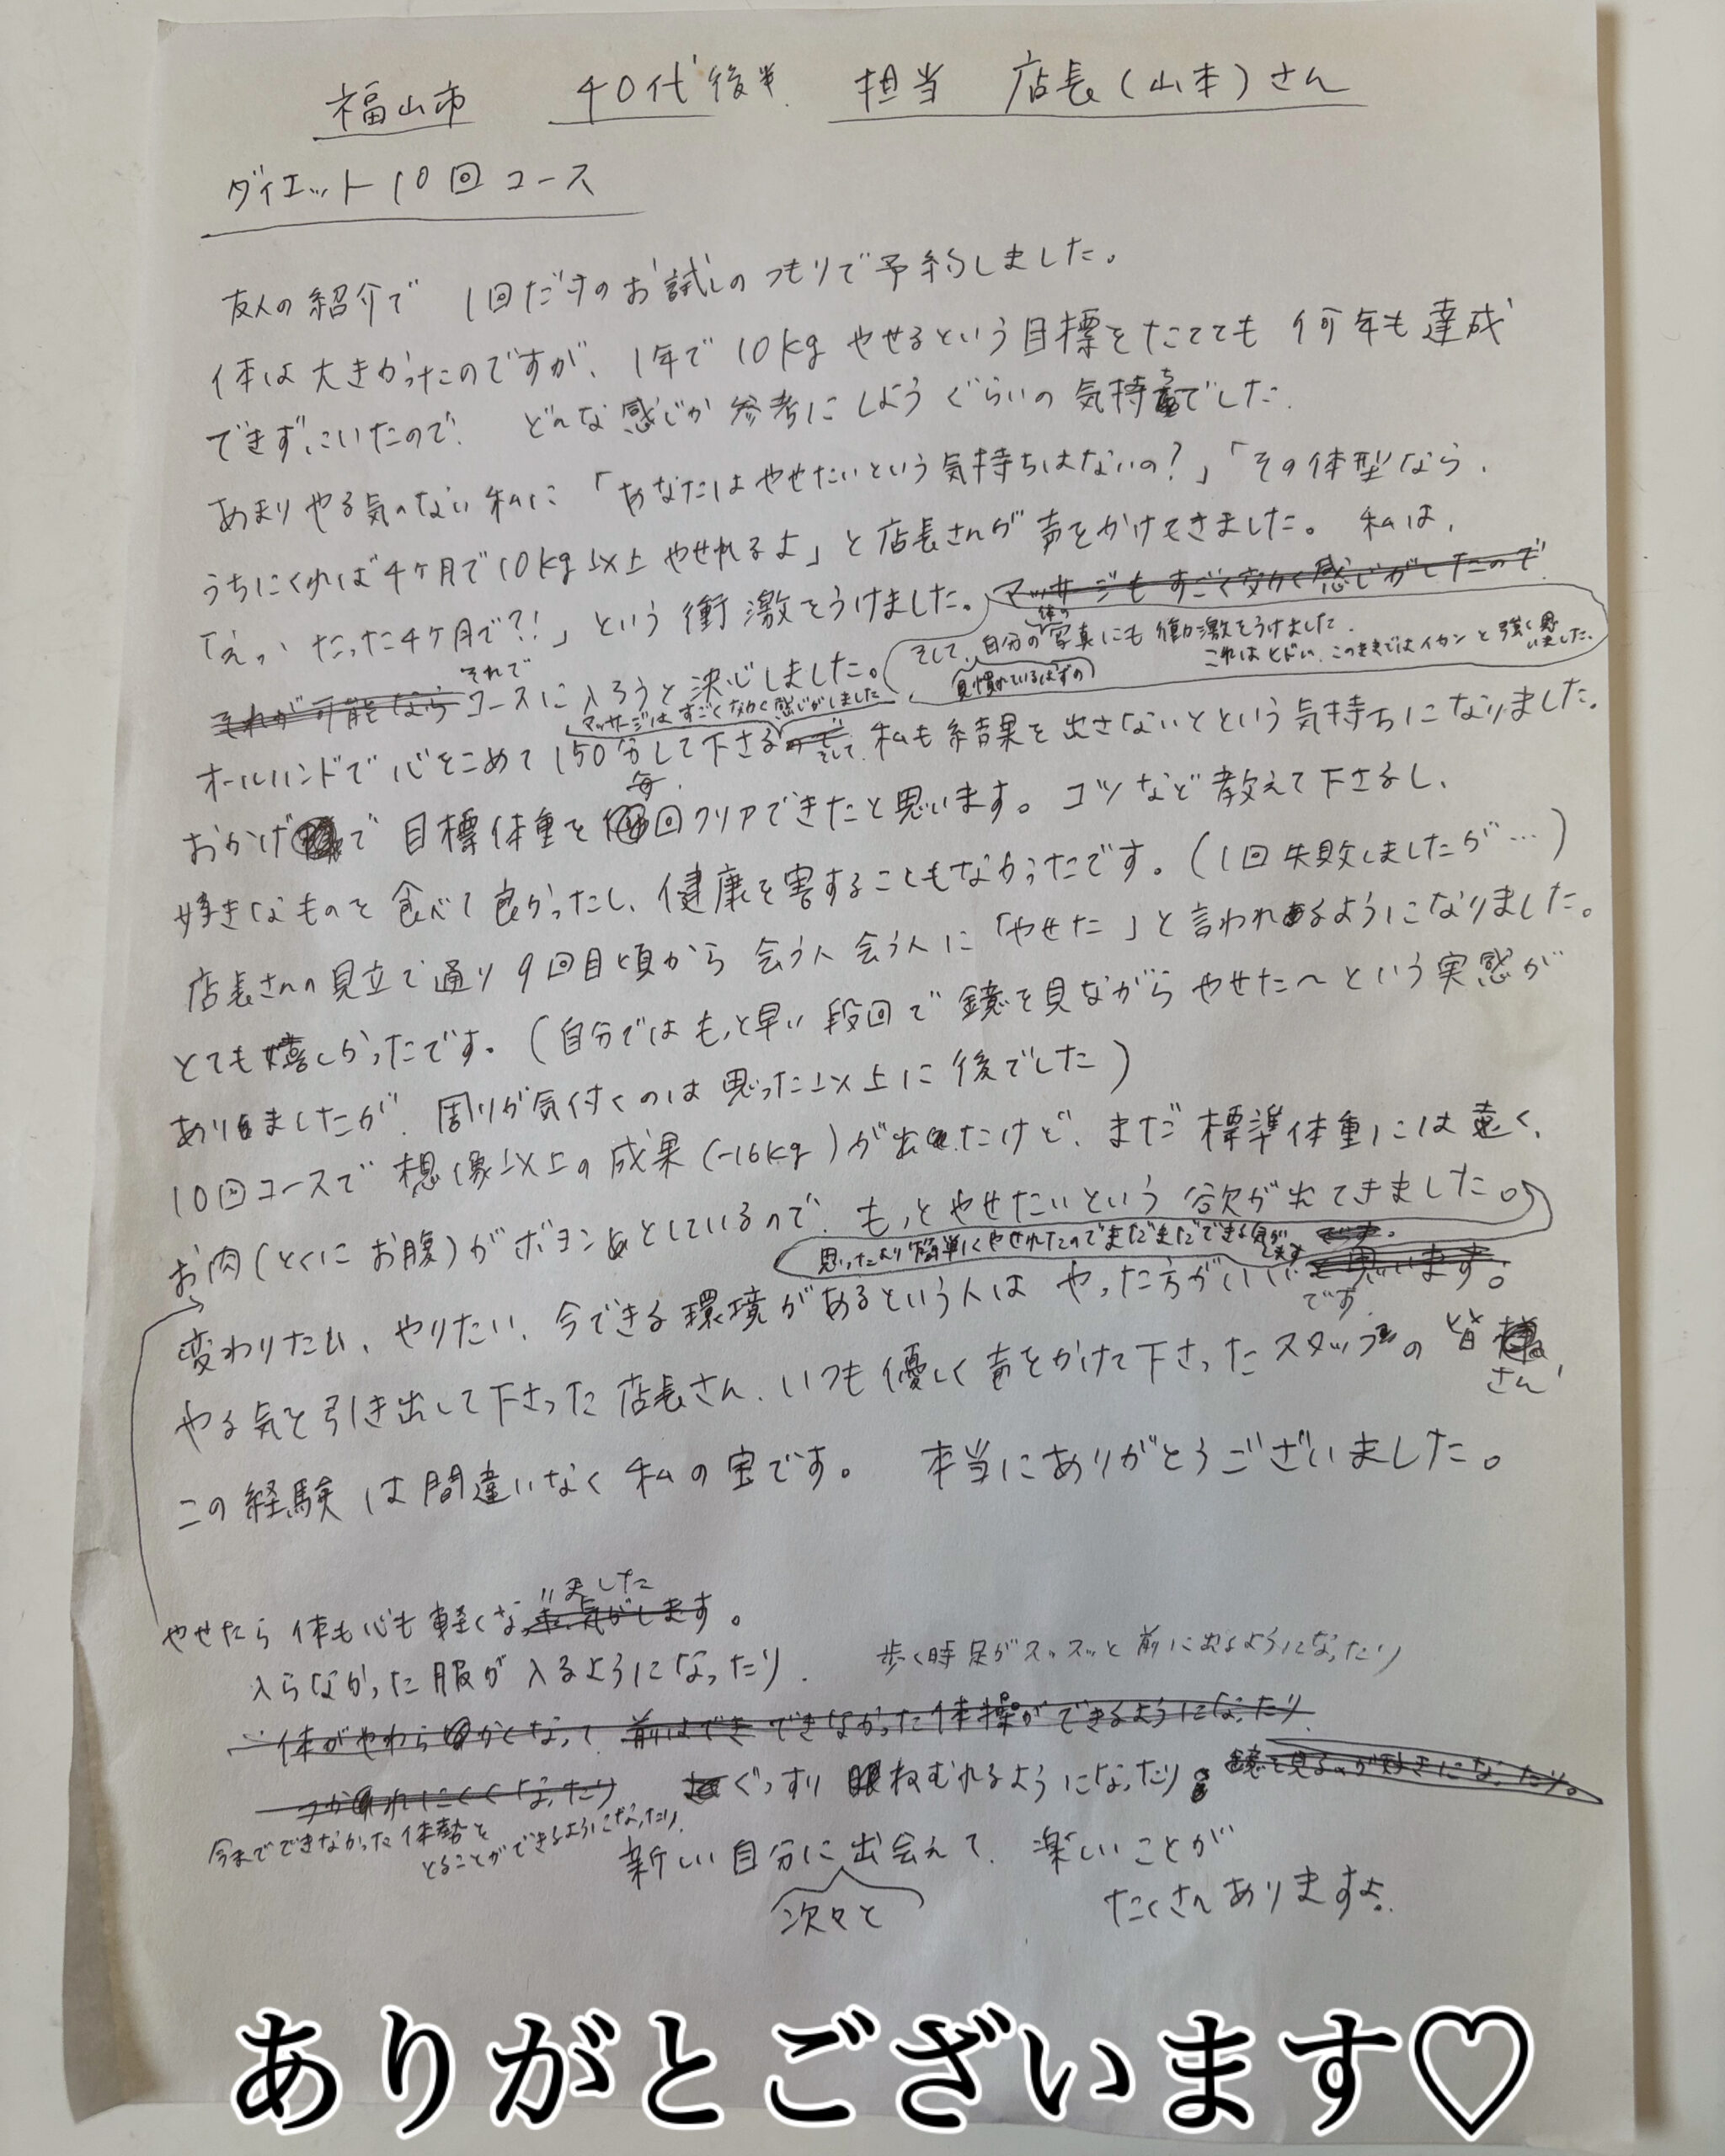 福山市　40代後半　担当　店長(山本)さん
ダイエット10回コース
友人の紹介で　1回だけのお試しのつもりで予約しました。
体は大きかったのですが、1年で10kgやせるという目標をたてても何年も達成
できずにいたので、どんな感じか参考にしようぐらいの気持ちでした。
あまりやる気のない私に「あなたはやせたいという気持ちはないの?」「その体型なら、
うちにくれば4ヶ月で10kg以上やせれるよ」と店長さんが声をかけてきました。私は、
「えっ、たった4ヶ月で?!」という衝激をうけました。マッサージもすごく効く感じがしたので
そして、自分の体の写真にも衝激をうけました。
(見慣れているはずの)
これはヒドい、このままではイカンと強く思いました。
それが可能なら それで コースに入ろうと決心しました。
マッサージはすごく効く感じがしました
オールハンドで心をこめて150分して下さるので そして、私も結果を出さないとという気持ちになりました。
おかげで目標体重を毎回クリアできたと思います。コツなど教えて下さるし、
好きなものを食べて良かったし、健康を害することもなかったです。(1回失敗しましたが…)
店長さんの見立て通り9回目頃から会う人会う人に「やせた」と言われるようになりました。
とても嬉しかったです。(自分ではもっと早い段回で鏡を見ながらやせた〜という実感が
ありましたが、周りが気付くのは思った以上に後でした)
10回コースで想像以上の成果(-16kg)が出たけど、まだ標準体重には遠く、
お肉(とくにお腹)がボヨンとしているので、もっとやせたいという欲が出てきました。
思ったより簡単にやせれたのでまだまだできる気がします です。
変わりたい、やりたい、今できる環境があるという人はやった方がいいと思います。
です。
やる気を引き出して下さった店長さん、いつも優しく声をかけて下さったスタッフの皆さん、
この経験は間違いなく私の宝です。　本当にありがとうございました。
やせたら体も心も軽くなりました 気がします。
入らなかった服が入るようになったり、　歩く時足がスッスッと前に出るようになったり
体がやわらかくなって、前はでき できなかった体操ができるようになったり、
つかれにくくなったり　ぐっすりねむれるようになったり、鏡を見るのが好きになったり。
今までできなかった体勢を
とることができるようになったり、
新しい自分に出会えて、楽しいことが
次々と
たくさんありますよ。
ありがとございます♡